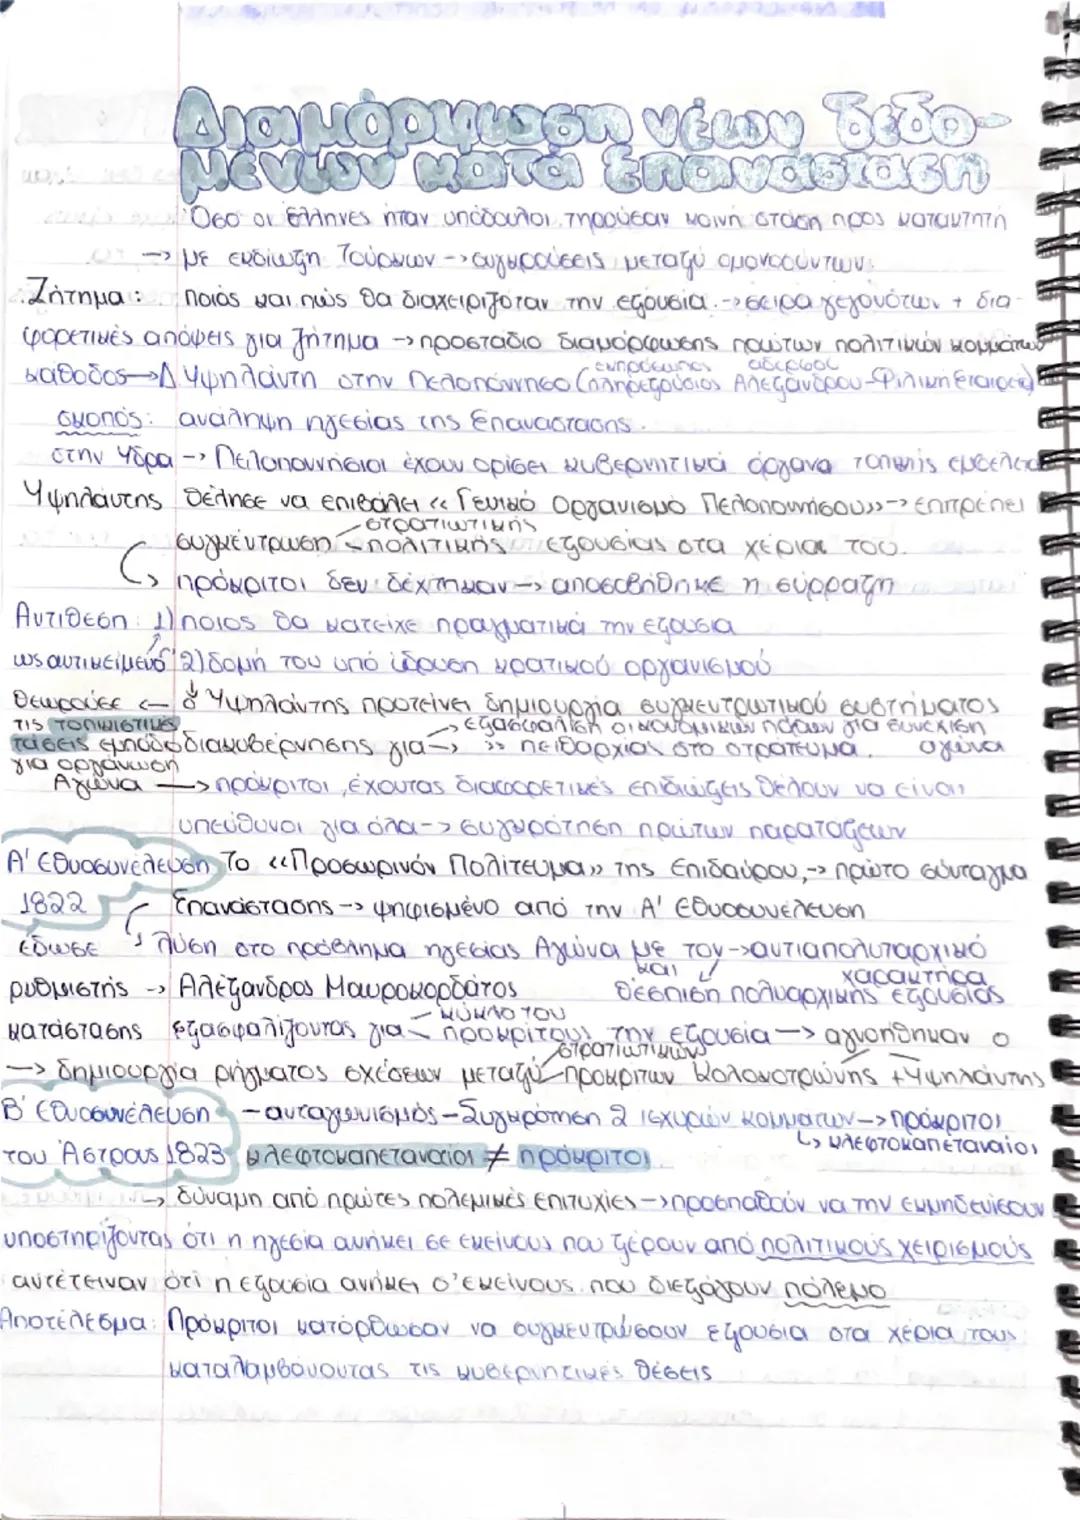 Διαμόρφωση νέων δεδο-
μένων κατά Επανάσταση
Όσο οι Έλληνες ήταν υπόδουλοι τηρούσαν κοινή στάση προς κατακτητή
-> με εκδίωξη Τούρκων -> συγκρούσεις μεταξύ ομονοούντων.
Ζήτημα: ποιός και πώς θα διαχειριζόταν την εξουσία. -> σειρά γεγονότων + δια-
φορετικές απόψεις για ζήτημα -> προστάδιο διαμόρφωσης πρώτων πολιτικών κομμάτων
εκπρόσωπος αδερφός
κάθοδος -> Δ. Υψηλάντη στην Πελοπόννησο (πληρεξούσιος Αλεξάνδρου-Φιλική Εταιρεία)
σκοπός: ανάληψη ηγεσίας της Επανάστασης.
στην Ύδρα -> Πελοποννήσιοι έχουν ορίσει κυβερνητικά όργανα τοπικής εμβέλειας
Υψηλάντης θέλησε να επιβάλει «Γενικό Οργανισμό Πελοποννήσου» -> επιτρέπει
στρατιωτικής
συγκέντρωση πολιτικής εξουσίας στα χέρια του.
-> πρόκριτοι δεν δέχτηκαν -> αποσοβήθηκε η σύρραξη
Αντίθεση: 1) ποιος θα κατείχε πραγματικά την εξουσία
ως αντικείμενο 2) δομή του υπό ίδρυση κρατικού οργανισμού
θεωρούσε <- ο Υψηλάντης προτείνει δημιουργία συγκεντρωτικού συστήματος
τις τοπικιστικές -> εξασφάλιση οικονομικών πόρων για συνέχιση
τάσεις εμπόδιο διακυβέρνησης για -> » πειθαρχίας στο στράτευμα. αγώνα
για οργάνωση
Αγώνα -> πρόκριτοι, έχοντας διαφορετικές επιδιώξεις θέλουν να είναι
υπεύθυνοι για όλα -> συγκρότηση πρώτων παρατάξεων
Α' Εθνοσυνέλευση Το «Προσωρινόν Πολίτευμα» της Επιδαύρου, -> πρώτο σύνταγμα
1822 Επανάστασης -> ψηφισμένο από την Α' Εθνοσυνέλευση
έδωσε λύση στο πρόβλημα ηγεσίας Αγώνα με τον -> αντιαπολυταρχικό
και χαρακτήρα
ρυθμιστής -> Αλέξανδρος Μαυροκορδάτος θέσπιση πολυαρχικής εξουσίας
κύκλο του
κατάστασης εξασφαλίζοντας για προκρίτους την εξουσία -> αγνοήθηκαν ο
στρατιωτικών
-> δημιουργία ρήγματος σχέσεων μεταξύ προκρίτων Κολοκοτρώνης + Υψηλάντης
Β' Εθνοσυνέλευση - ανταγωνισμός - Συγκρότηση 2 ισχυρών κομμάτων -> πρόκριτοι
-> κλεφτοκαπεταναίοι
του Άστρους 1823 κλεφτοκαπεταναίοι ≠ πρόκριτοι
-> δύναμη από πρώτες πολεμικές επιτυχίες -> προσπαθούν να την εκμηδενίσουν
υποστηρίζοντας ότι η ηγεσία ανήκει σε εκείνους που ξέρουν από πολιτικούς χειρισμούς
αντέτειναν ότι η εξουσία ανήκει σ'εκείνους που διεξάγουν πόλεμο
Αποτέλεσμα: Πρόκριτοι κατόρθωσαν να συγκεντρώσουν εξουσία στα χέρια τους
καταλαμβάνοντας τις κυβερνητικές θέσεις